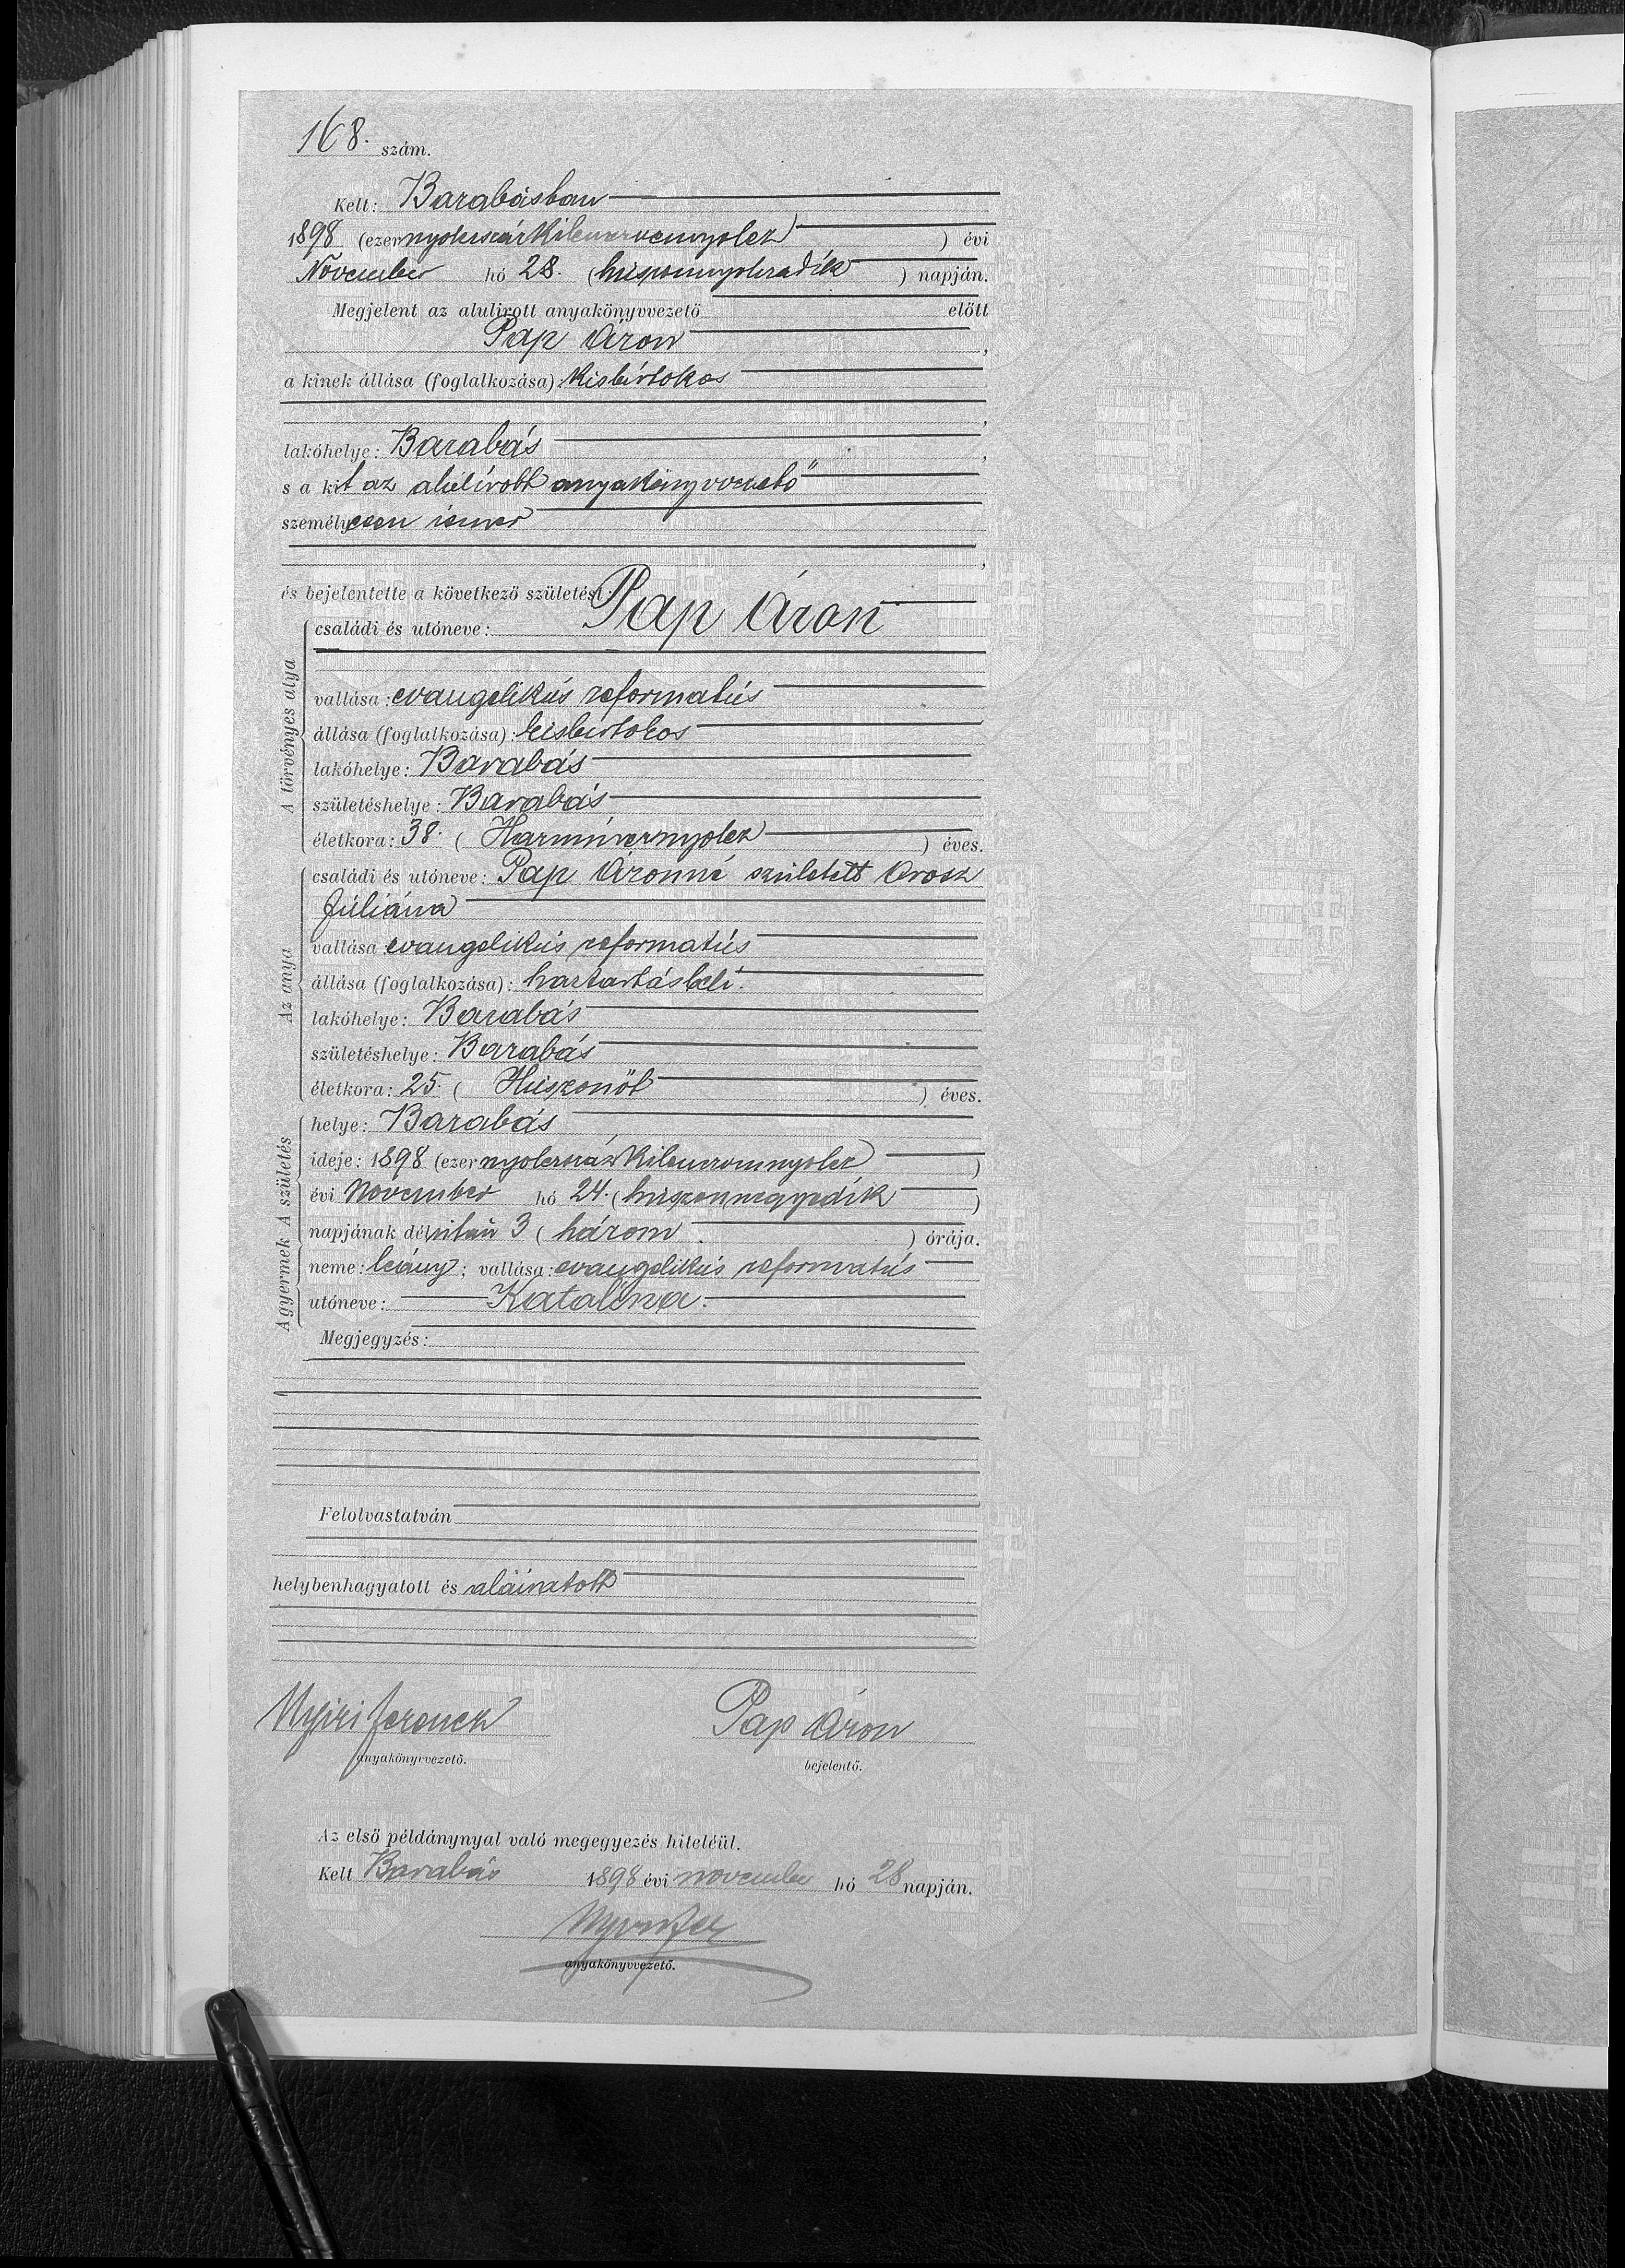 168. szám.
Kelt: Barabásban
1898 (ezernyolcszázkilenczvennyolcz) évi
November hó 28. (huszonnyolczadik) napján.
Megjelent az alulirott anyakönyvvezető előtt
Pap Áron,
a kinek állása (foglalkozása): kisbirtokos
,
lakóhelye: Barabás,
s a kit az alulírott anyakönyvvezető
személyesen ismer
,
és bejelentette a következő születést:
A törvényes atya
családi és utóneve: Pap Áron
vallása: evangelikús reformatús
állása (foglalkozása): kisbirtokos
lakóhelye: Barabás
születéshelye: Barabás
életkora: 38. (Harmincznyolcz) éves.
Az anya
családi és utóneve: Pap Áronné született Orosz
Júliánna
vallása: evangelikús reformatús
állása (foglalkozása): háztartásbeli.
lakóhelye: Barabás
születéshelye: Barabás
életkora: 25. (Húszonöt) éves.
A gyermek A születés
helye: Barabás
ideje: 1898 (ezernyolczszázkilenczvennyolcz)
évi November hó 24. (huszonnegyedik)
napjának délután 3 (három) órája.
neme: leány; vallása: evangelikús reformatús
utóneve: Katalina.
Megjegyzés:
Felolvastatván
helybenhagyatott és aláíratott
Nyiri Ferencz Pap Áron
anyakönyvvezető. bejelentő.
Az első példánynyal való megegyezés hiteléül.
Kelt Barabás 1898 évi november hó 28 napján.
Nyiri Fer
anyakönyvvezető.